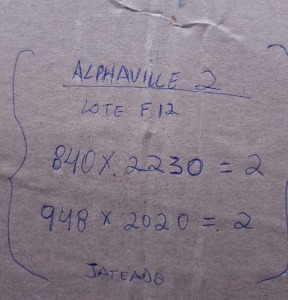 ALPHAVILLE 2
LOTE F12
840 X 2230 = 2
948 X 2020 = 2
JATEADO